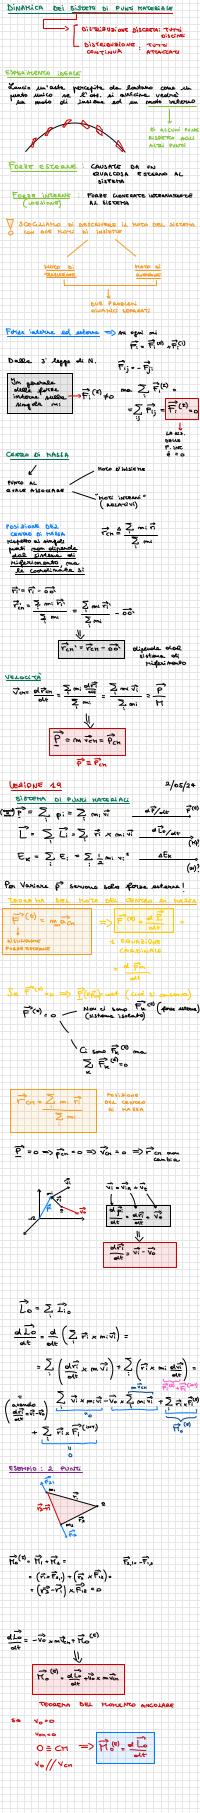 DINAMICA DEI SISTEMI DI PUNTI MATERIALI
DISTRIBUZIONE DISCRETA: TUTTI DISCINI
DISTRIBUZIONE CONTINUA : TUTTI ATTACCATI
ESPERIMENTO IDEALE
Lancio un'asta percepita da lontano come un
punto unico se l'oss. si avvicina vedrà
la moto di insieme ed un moto interno
DI ALCUNI PUNTI
RISPETTO AGLI
ALTRI PUNTI
FORZE ESTERNE: CAUSATE DA UN
QUALCOSA ESTERNO AL
SISTEMA
FORZE INTERNE : FORZE GENERATE INTERNAMENTE
(COESIONE) AL SISTEMA
! SCEGLIAMO DI DESCRIVERE IL MOTO DEL SISTEMA
CON DUE MOTI DI INSIEME
MOTO DI
TRASLAZIONE
MOTO DI
ROTAZIONE
DUE PROBLEMI
QUINDI SEPARATI
Forze interne ed esterne → su ogni mi
Fi = Fi(E) + Fi(I)
Dalla 3° legge di N. Fij = -Fji
In generale
delle forze
interne sulla
singola mi
→ Fi(I) ≠ 0 ma Σ Fi(I) =
= Σ Fij = F(I) = 0
LA RIS.
DELLE
F. INT.
È = 0
CENTRO DI MASSA
PUNTO AL
QUALE ASSOCIARE
MOTO D'INSIEME
"MOTI INTERNI"
(RELATIVI)
POSIZIONE DEL
CENTRO DI MASSA
rispetto ai singoli
punti non dipende
dal sistema di
riferimento ma
le coordinate sì
rCM ≜ Σ mi ri / Σ mi
ri' = ri - OO'
rCM' = Σ mi ri' / Σ mi = Σ mi ri / Σ mi - OO'
rCM' = rCM - OO' dipende dal
sistema di
riferimento
VELOCITÀ
vCM = drCM/dt = Σ mi dri/dt / Σ mi = Σ mi vi / Σ mi = P / M
P = m vCM = PCM
P = PCM
LEZIONE 19 2/05/24
SISTEMA DI PUNTI MATERIALI
P = Σ pi = Σ mi vi dP/dt F(E)
L = Σ Li = Σ ri x mi vi dLo/dt
EK = Σ Ei = Σ 1/2 mi vi² dEK
Per variare P servono solo forze esterne!
TEOREMA DEL MOTO DEL CENTRO DI MASSA
F(E) = m aCM
RISULTANTE
FORZE ESTERNE
=> F(E) = dP/dt
1 EQUAZIONE
CARDINALE
= dP/dt
Se F(E) = 0 => P(t) = cost (cioè si conserva)
F(E) = 0
Non ci sono FK(E) (forze esterne)
(sistema isolato)
Ci sono FK(E) ma
Σ FK(E) = 0
rCM = Σ mi ri / Σ mi
POSIZIONE
DEL CENTRO
DI MASSA
P = 0 => PCM = 0 => vCM = 0 => rCM non
cambia
dri/dt = vi - vo
Lo = Σ Lio
dLo/dt = d/dt (Σ ri x mi vi) =
= Σ (dri/dt x mi vi) + Σ (ri x mi dvi/dt) =
= Σ vi x mi vi - vo x Σ mi vi + Σ ri x Fi(E)
+ Σ ri x Fi(INT)
ESEMPIO: 2 PUNTI
dLo/dt = -vo x m vCM + Mo(E)
Mo(E) = dLo/dt + vo x m vCM
TEOREMA DEL MOMENTO ANGOLARE
se vo = 0
vCM = 0
O ≡ CM
vo // vCM
=> Mo(E) = dLo/dt